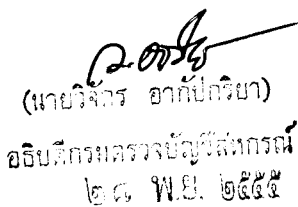 (นายวิจักร อากัปกริยา)
อธิบดีกรมตรวจบัญชีสหกรณ์
พ.ย. ๒๕๕๕